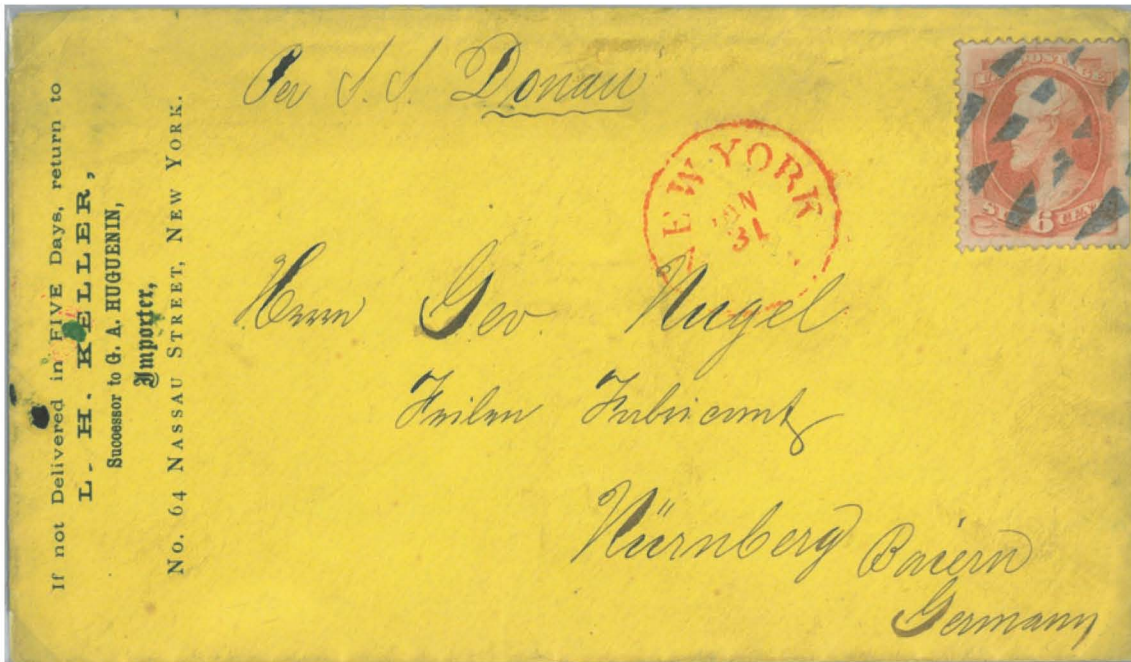 If not Delivered in FIVE Days, return to
L. H. KELLER,
Successor to G. A. HUGUENIN,
Importer,
No. 64 NASSAU STREET, NEW YORK.
Per S. S. Donau
NEW YORK
31
U.S. POSTAGE
SIX 6 CENTS
Herrn Geo. Nugel
Feilen Fabricant
Nürnberg Baiern
Germany